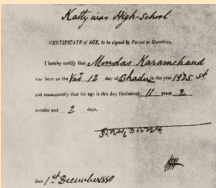 Kattywar High-School
CERTIFICATE of AGE, to be signed by Parent or Guardian.
I hereby certify that Mondas Karamchand
was born on the Vad 12 day of Bhadarva the year 1925 St
and consequently that his age is this day (inclusive) 11 years 2
months and 2 days.
Date 1st December 1880